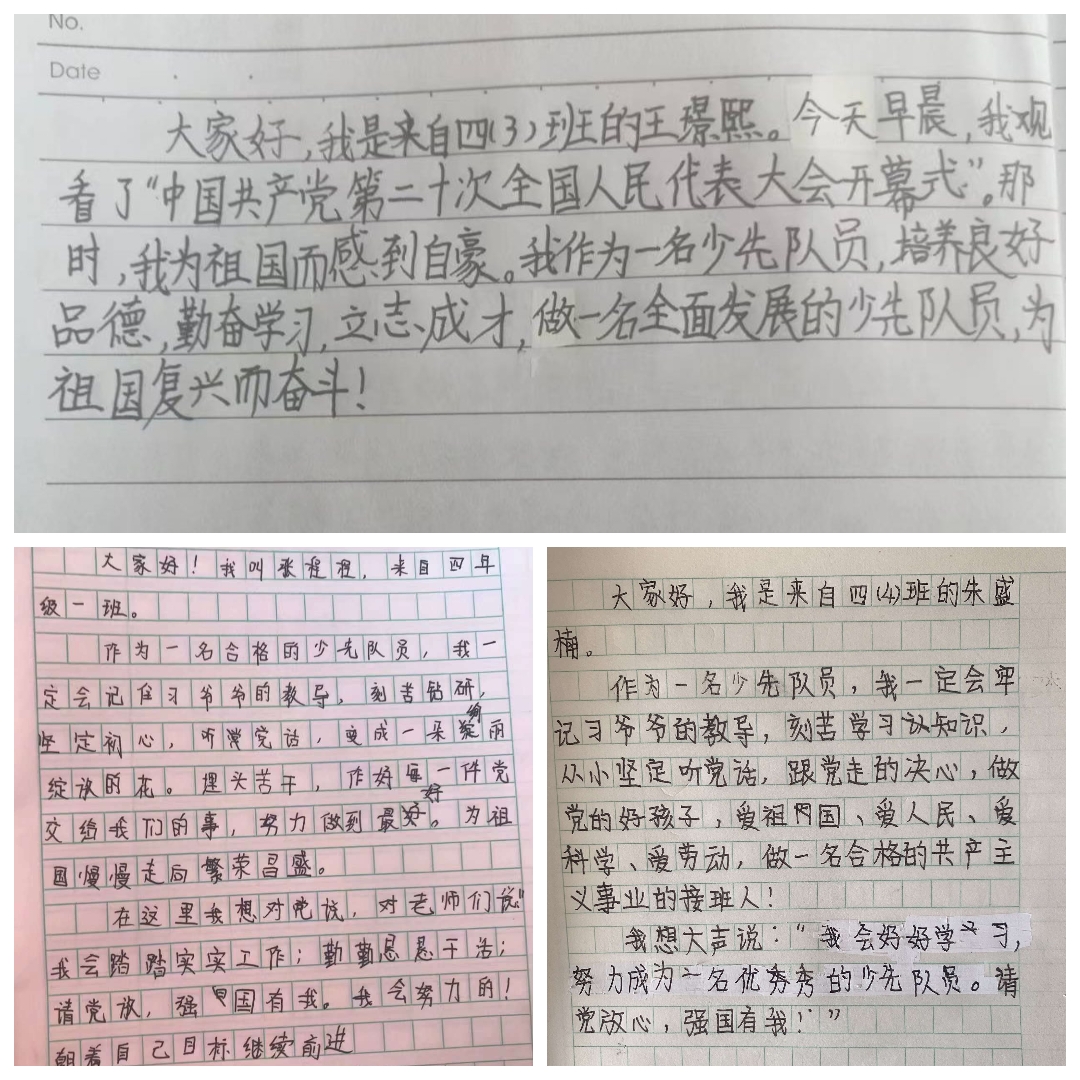 No.
Date
大家好,我是来自四(3)班的王璟熙。今天早晨,我观
看了“中国共产党第二十次全国人民代表大会开幕式”。那
时,我为祖国而感到自豪。我作为一名少先队员,培养良好
品德,勤奋学习,立志成才,做一名全面发展的少先队员,为
祖国复兴而奋斗!
大家好!我叫张程程,来自四年
级一班。
作为一名合格的少先队员,我一
定会记住习爷爷的教导,刻苦钻研,
坚定初心,听党话,变成一朵向雨
绽放的花。埋头苦干,作好每一件党
交给我们的事,努力做到最好。为祖
国慢慢走向繁荣昌盛。
在这里我想对党说,对老师们说“
我会踏踏实实工作;勤勤恳恳干活;
请党放,强国有我。我会努力的!
朝着自己目标继续前进
大家好,我是来自四(4)班的朱盛
楠。
作为一名少先队员,我一定会牢
记习爷爷的教导,刻苦学习认知识,
从小坚定听党话,跟党走的决心,做
党的好孩子,爱祖国、爱人民、爱
科学、爱劳动,做一名合格的共产主
义事业的接班人!
我想大声说:“我会好好学习,
努力成为一名优秀秀的少先队员。请
党放心,强国有我!”